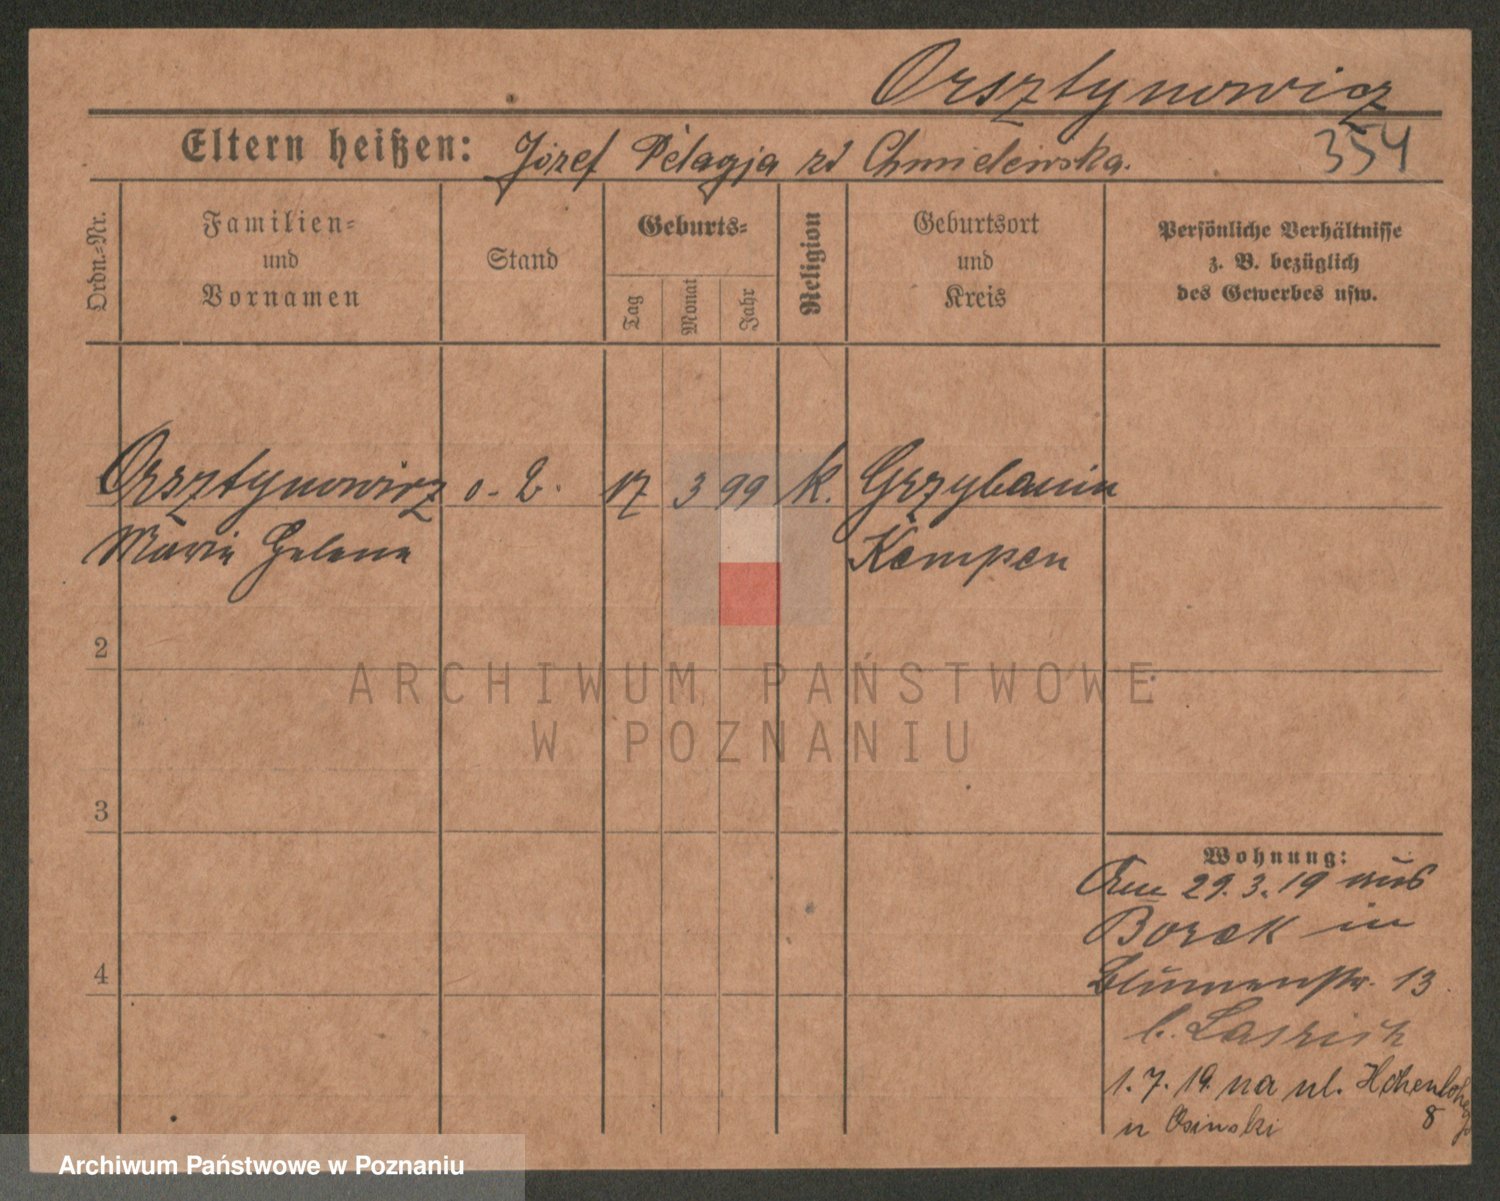 Orsztynowicz
Eltern heißen: Józef Pelagja zd Chmielewska.
354
Ordn.=Nr.
Familien=
und
Vornamen
Stand
Geburts=
Tag
Monat
Jahr
Religion
Geburtsort
und
Kreis
Persönliche Verhältnisse
z. B. bezüglich
des Gewerbes usw.
Orsztynowicz o. B. 17 3 99 k. Grzybanin
Marie Helene Kempen
2
3
4
Wohnung:
Am 29.3.19 aus
Borek in
Blumenstr. 13.
b.
1. 7. 19 na ul. Hohenlohego
8
u Osinski
ARCHIWUM PAŃSTWOWE
W POZNANIU
Archiwum Państwowe w Poznaniu